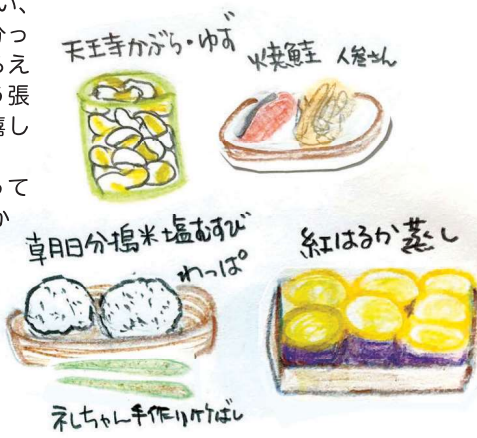 い、
分っ
え
張
嬉し
って
か
天王寺かぶら・ゆず
焼鮭 人参さん
朝日分搗米塩むすび
わっぱ
紅はるか蒸し
礼ちゃん手作り竹ばし